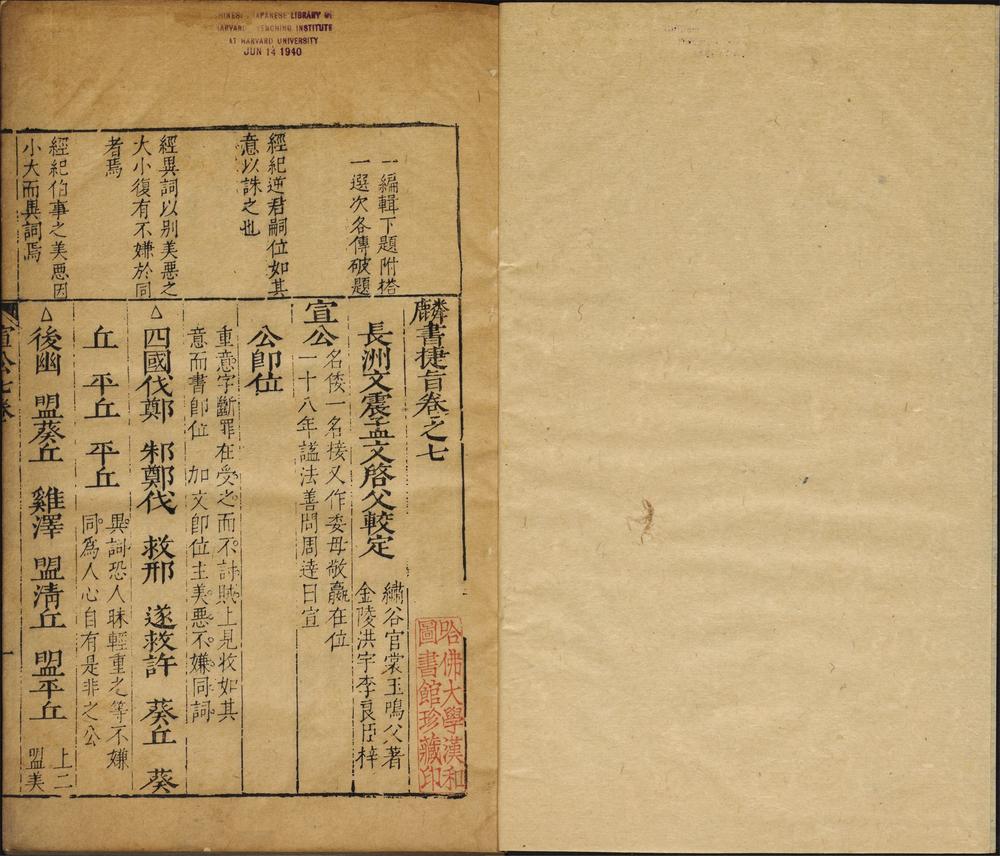 CHINESE JAPANESE LIBRARY OF
HARVARD YENCHING INSTITUTE
AT HARVARD UNIVERSITY
JUN 14 1940
一編輯下題附搭
一選次各傳破題
經紀逆君嗣位如其
意以誅之也
經異詞以别美惡之
大小復有不嫌於同
者焉
經紀伯事之美惡因
小大而異詞焉
麟書捷旨卷之七
繡谷官裳玉鳴父著
長洲文震孟文啓父較定
金陵洪宇李良臣梓
宣公
名倭一名接又作委母敬嬴在位
一十八年謚法善問周達曰宣
公即位
重意字斷罪在受之而不討賊上見收如其
意而書即位 加文即位主美惡不嫌同詞
△四國伐鄭 邾鄭伐 救邢 遂救許 葵丘 葵
丘 平丘 平丘
異詞恐人昧輕重之等不嫌
同爲人心自有是非之公
△後幽 盟葵丘 雞澤 盟清丘 盟平丘
上二
盟美
宣公七卷
一
哈佛大學漢和
圖書館珍藏印